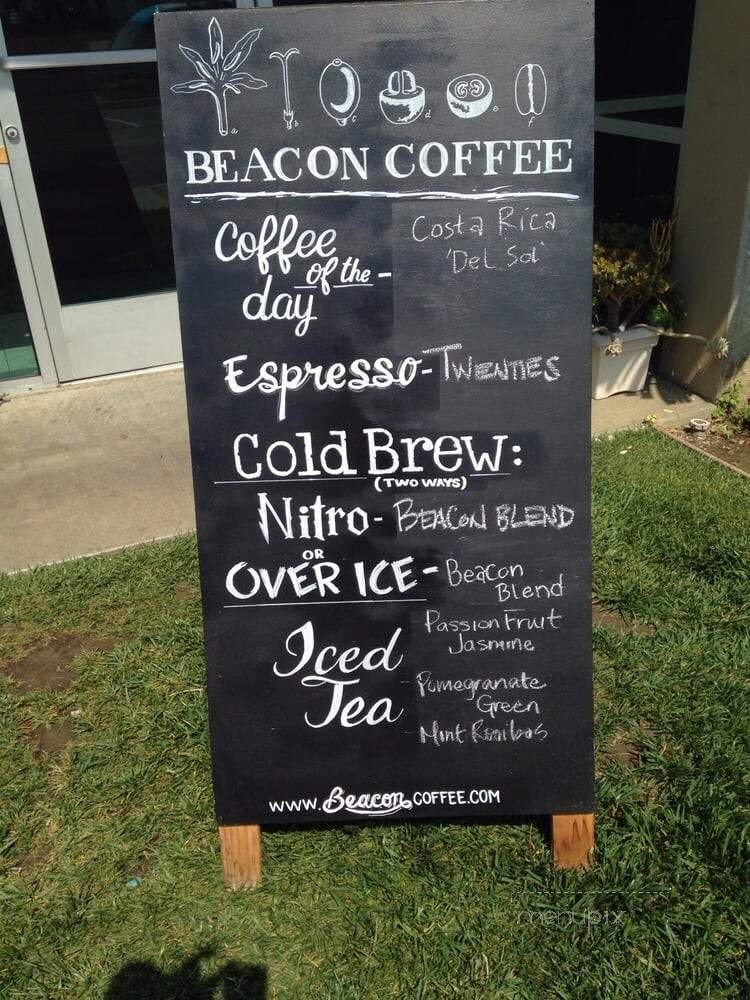 a b c d e f
BEACON COFFEE
Coffee of the day - Costa Rica
'Del Sol'
Espresso - TWENTIES
Cold Brew:
(TWO WAYS)
Nitro - BEACON BLEND
OR
OVER ICE - Beacon
Blend
Iced Tea
Passion Fruit
Jasmine
Pomegranate
Green
Mint Rooibos
www.Beacon COFFEE.COM
menupix